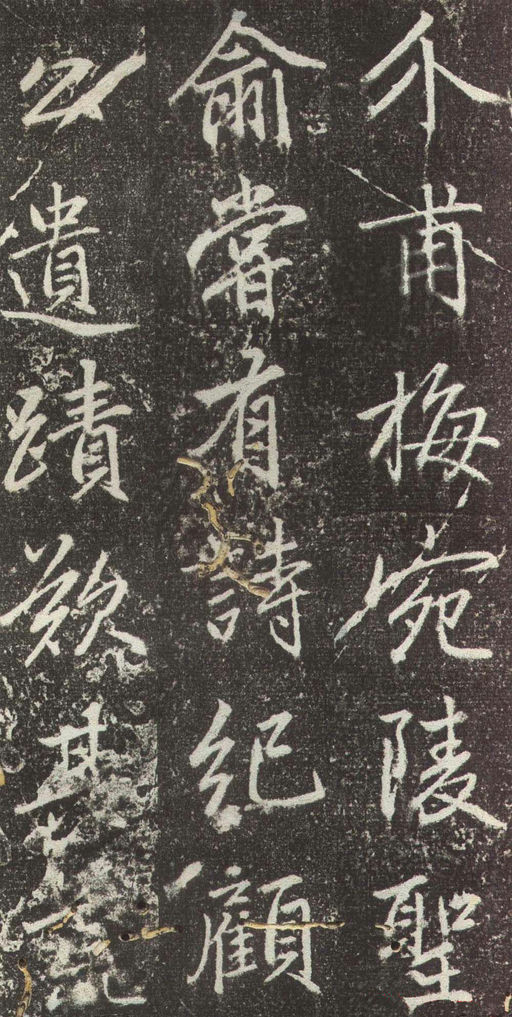 介甫梅宛陵聖
俞嘗有詩紀顧
公遺蹟其